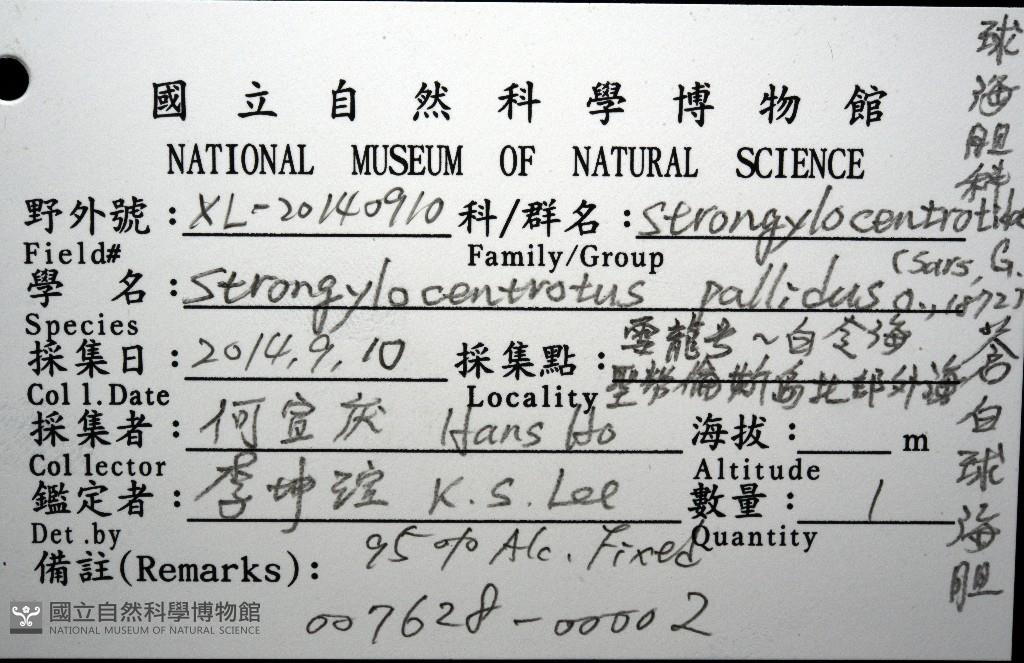 國立自然科學博物館
NATIONAL MUSEUM OF NATURAL SCIENCE
野外號：XL-20140910 科/群名：Strongylocentrotidae
Field# Family/Group
學 名：Strongylocentrotus pallidus (Sars, G. O., 1872)
Species
採集日：2014,9,10 採集點：雲龍号～白令海
聖勞倫斯島北部外海
Coll.Date Locality
採集者：何宣庆 Hans Ho 海拔： m
Collector Altitude
鑑定者：李坤瑄 K.S. Lee 數量：1
Det.by Quantity
備註(Remarks)：95% Alc. Fixed
007628-00002
球海胆科
蒼白球海胆
國立自然科學博物館
NATIONAL MUSEUM OF NATURAL SCIENCE